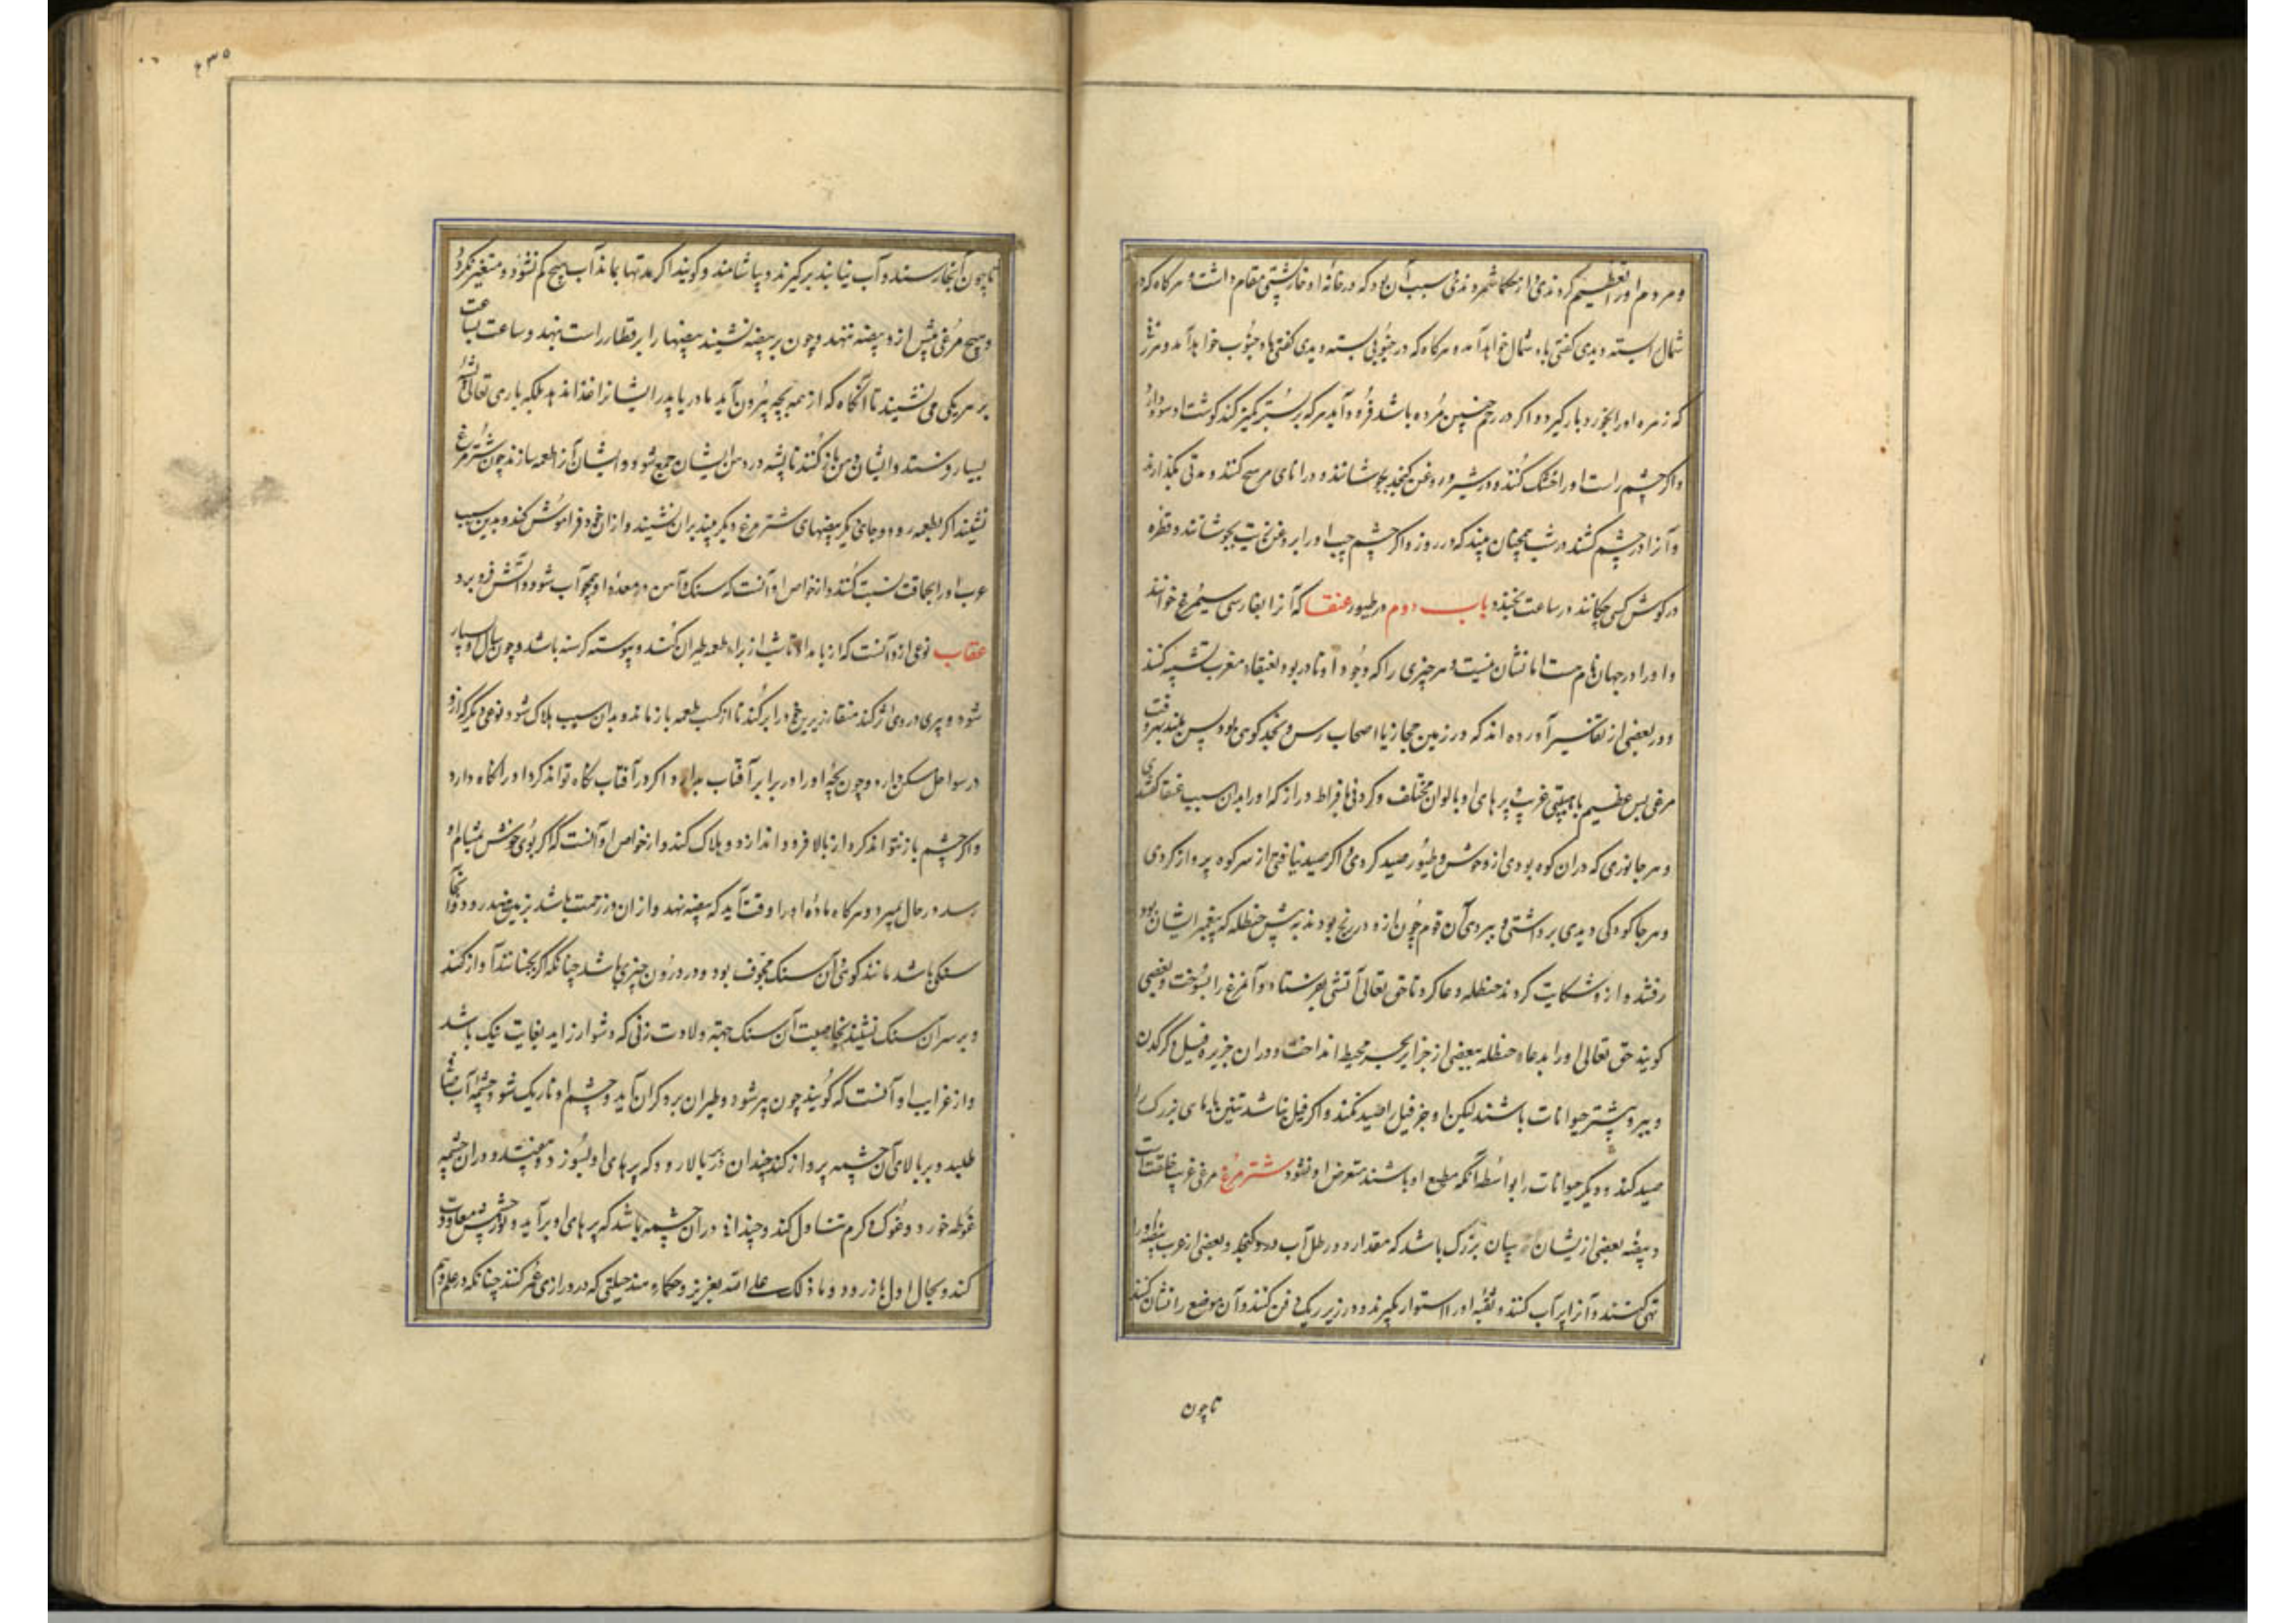 و مردم او را تعظیم کردندی و از حکما شمردندی و سبب آن بود که در خانه او خارپشتی مقام داشت و هرگاه که در
شمال بسته دیدی گفتی باد شمال خواهد آمد و هرگاه که در جنوبی بسته دیدی گفتی باد جنوب خواهد آمد و هر زن
که زهره او را بخورد بار گیرد و اگر در رحم جنین مرده باشد فرود آید هر که بر بستر کمیز کند گوشت او سود دارد
و اگر چشم راست او را خشک کنند و در شیر و روغن کنجد بجوشانند و در انای مس کنند و مدتی بگذارند
و آنرا در چشم کشند در شب همچنان بیند که در روز و اگر چشم چپ او را بروغن بجوشانند و قطره
در گوش کسی چکانند در ساعت بخسبد باب دوم در طیور عنقا که آنرا بفارسی سیمرغ خوانند
و او را در جهان نام هست اما نشان نیست و هر چیزی را که وجود او نادر بود بعنقاء مغرب تشبیه کنند
و در بعضی از تفاسیر آورده اند که در زمین حجاز یا اصحاب رس و نجد کوهی بود بس بلند برو
مرغی بس عظیم با هیبتی غریب و پرهای او بالوان مختلف و گردنی بافراط دراز که او را بدان سبب عنقا گفتندی
و هر جانوری که در آن کوه بودی از وحوش و طیور صید کردی و اگر صید نیافتی از سر کوه پرواز کردی
و هر جا کودکی دیدی برداشتی و ببردی آن قوم چون ازو در رنج بودند به پیش حنظله که پیغمبر ایشان بود
رفتند و ازو شکایت کردند حنظله دعا کرد تا حق تعالی آتشی بفرستاد و آن مرغ را بسوخت و بعضی
گویند حق تعالی او را بدعاء حنظله ببعضی از جزایر بحر محیط انداخت و در آن جزیره فیل و کرگدن
و ببر و بیشتر حیوانات باشند لیکن او جز فیل را صید نکند و اگر فیل نباشد تنین یا مارهای بزرگ را
صید کند و دیگر حیوانات را بواسطه آنکه مطیع او باشند متعرض او نشود شترمرغ مرغی غریب خلقت است
و بیضه بعضی ازیشان چنان بزرگ باشد که مقدار ده رطل آب درو گنجد و بعضی از عرب بیضه او را
تهی کنند و آنرا پر آب کنند و ثقبه او را استوار بگیرند و در زیر ریگ دفن کنند و آن موضع را نشان کنند
تا چون
تا چون آنجا رسند و آب نیابند برگیرند و بیاشامند و گویند اگر مدتها بماند آب هیچ کم نشود و متغیر نگردد
و هیچ مرغی بیش ازو بیضه ننهد و چون بر بیضه نشیند بیضها را بر قطار راست بنهد و ساعت بساعت
بر هر یکی می نشیند تا آنگاه که از همه بچه بیرون آید مادر یا پدر ایشانرا غذا ندهد بلکه باری تعالی پشه
بسیار فرستد و ایشان دهن باز کنند تا پشه در دهن ایشان جمع شود و ایشان آنرا طعمه سازند چون شترمرغ
نشیند اگر بطعمه رود و جای دیگر بیضهای شترمرغ دیگر بیند بران نشیند و از ان خود فراموش کند و بدین سبب
عرب او را بحماقت نسبت کنند و از خواص او آنست که سنگ و آهن در معده او همچو آب شود و آتش فرو برد
عقاب نوعی ازو آنست که از بامداد تا شب از برای طعمه طیران کند و پیوسته گرسنه باشد و چون سال او بسیار
شود و پیری در وی اثر کند منقار زیرین خود را بر کند تا از کسب طعمه باز ماند و بدان سبب هلاک شود و نوعی دیگر که ازو
در سواحل مسکن دارد و چون بچه او را در برابر آفتاب بدارد اگر در آفتاب نگاه تواند کرد او را نگاه دارد
و اگر چشم باز نتواند کرد از بالا فرود اندازد و هلاک کند و از خواص او آنست که اگر بوی خوش بمشام او
رسد در حال بمیرد و هرگاه ماده او را وقت آید که بیضه نهد و از ان در زحمت باشد بزمین هند رود و آنجا
سنگی باشد مانند گوی و آن سنگ مجوف بود و در درون چیزی باشد چنانکه اگر بجنبانند آواز کند
و بر سر آن سنگ نشیند بخاصیت آن سنگ جهة ولادت زنی که دشوار زاید بغایت نیک باشد
و از غرایب او آنست که گویند چون پیر شود و طیران برو گران آید و چشم او تاریک شود چشمه آب صافی
طلبد و بر بالای آن چشمه پرواز کند چندان در بالا رود که پرهای او بسوزد و بیفتد و در آن چشمه
غوطه خورد و غوک و کرم تناول کند و چندان در آن چشمه باشد که پرهای او برآید و نور چشمش معاودت
کند و بحال اول باز رود و ما ذلک علی الله بعزیز و حکماء هند حیلتی که در درازی عمر کنند چنانکه در علم وهم